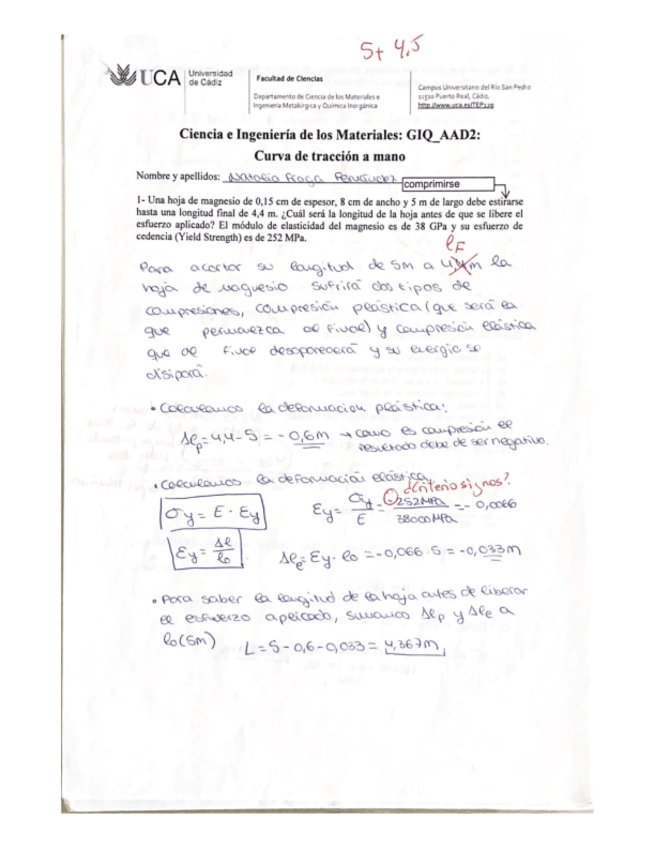 5+ 4,5
UCA Universidad de Cádiz
Facultad de Ciencias
Departamento de Ciencia de los Materiales e
Ingeniería Metalúrgica y Química Inorgánica
Campus Universitario del Río San Pedro
11510 Puerto Real, Cádiz.
http://www.uca.es/TEP120
Ciencia e Ingeniería de los Materiales: GIQ_AAD2:
Curva de tracción a mano
Nombre y apellidos: Natalia Fraga Fernández
comprimirse
1- Una hoja de magnesio de 0,15 cm de espesor, 8 cm de ancho y 5 m de largo debe estirarse
hasta una longitud final de 4,4 m. ¿Cuál será la longitud de la hoja antes de que se libere el
esfuerzo aplicado? El módulo de elasticidad del magnesio es de 38 GPa y su esfuerzo de
cedencia (Yield Strength) es de 252 MPa.
lF
Para acortar su longitud de 5m a 4,4m la
hoja de magnesio sufrirá dos tipos de
compresiones, compresión plástica (que será la
que permanezca al final) y compresión elástica
que al final desaparecerá y su energía se
disipará.
• Calculamos la deformación plástica:
Δlp = 4,4 - 5 = - 0,6m → como es compresión el
resultado debe de ser negativo.
• Calculamos la deformación elástica
¿Criterio signos?
σy = E · εy
εy = σy/E = -252MPa/38000MPa = - 0,0066
εy = Δl/l0
Δle = εy · l0 = -0,066 · 5 = -0,033m
• Para saber la longitud de la hoja antes de liberar
el esfuerzo aplicado, sumamos Δlp y Δle a
l0 (5m)
L = 5 - 0,6 - 0,033 = 4,367m